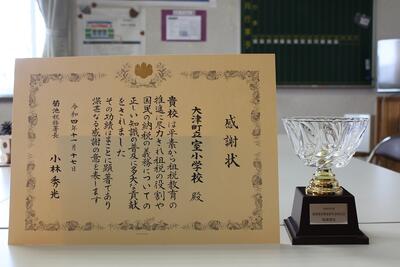 感謝状
大津町立室小学校 殿
貴校は平素から租税教育の
推進に尽力され租税の役割や
国民の納税の義務についての
正しい知識の普及に多大な貢献
をされました
その功績はまことに顕著であり
深甚なる感謝の意を表します
令和四年十一月十七日
菊池税務署長 小林秀光